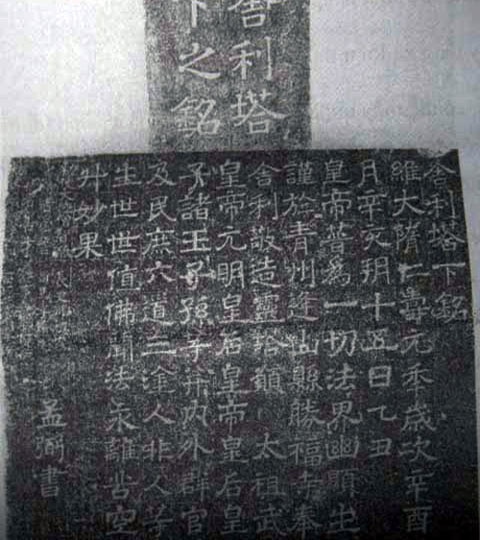 舍利塔
下之銘
舍利塔下銘
維大隋仁壽元年歲次辛酉
月辛亥朔十五日乙丑
皇帝普為一切法界幽顯生
謹於青州逢山縣勝福寺奉
舍利敬造靈塔願 太祖武
皇帝元明皇后皇帝皇后皇
子諸王子孫等并內外群官
及民庶六道三塗人非人等
生世世值佛聞法永離苦空
升妙果
孟弼書